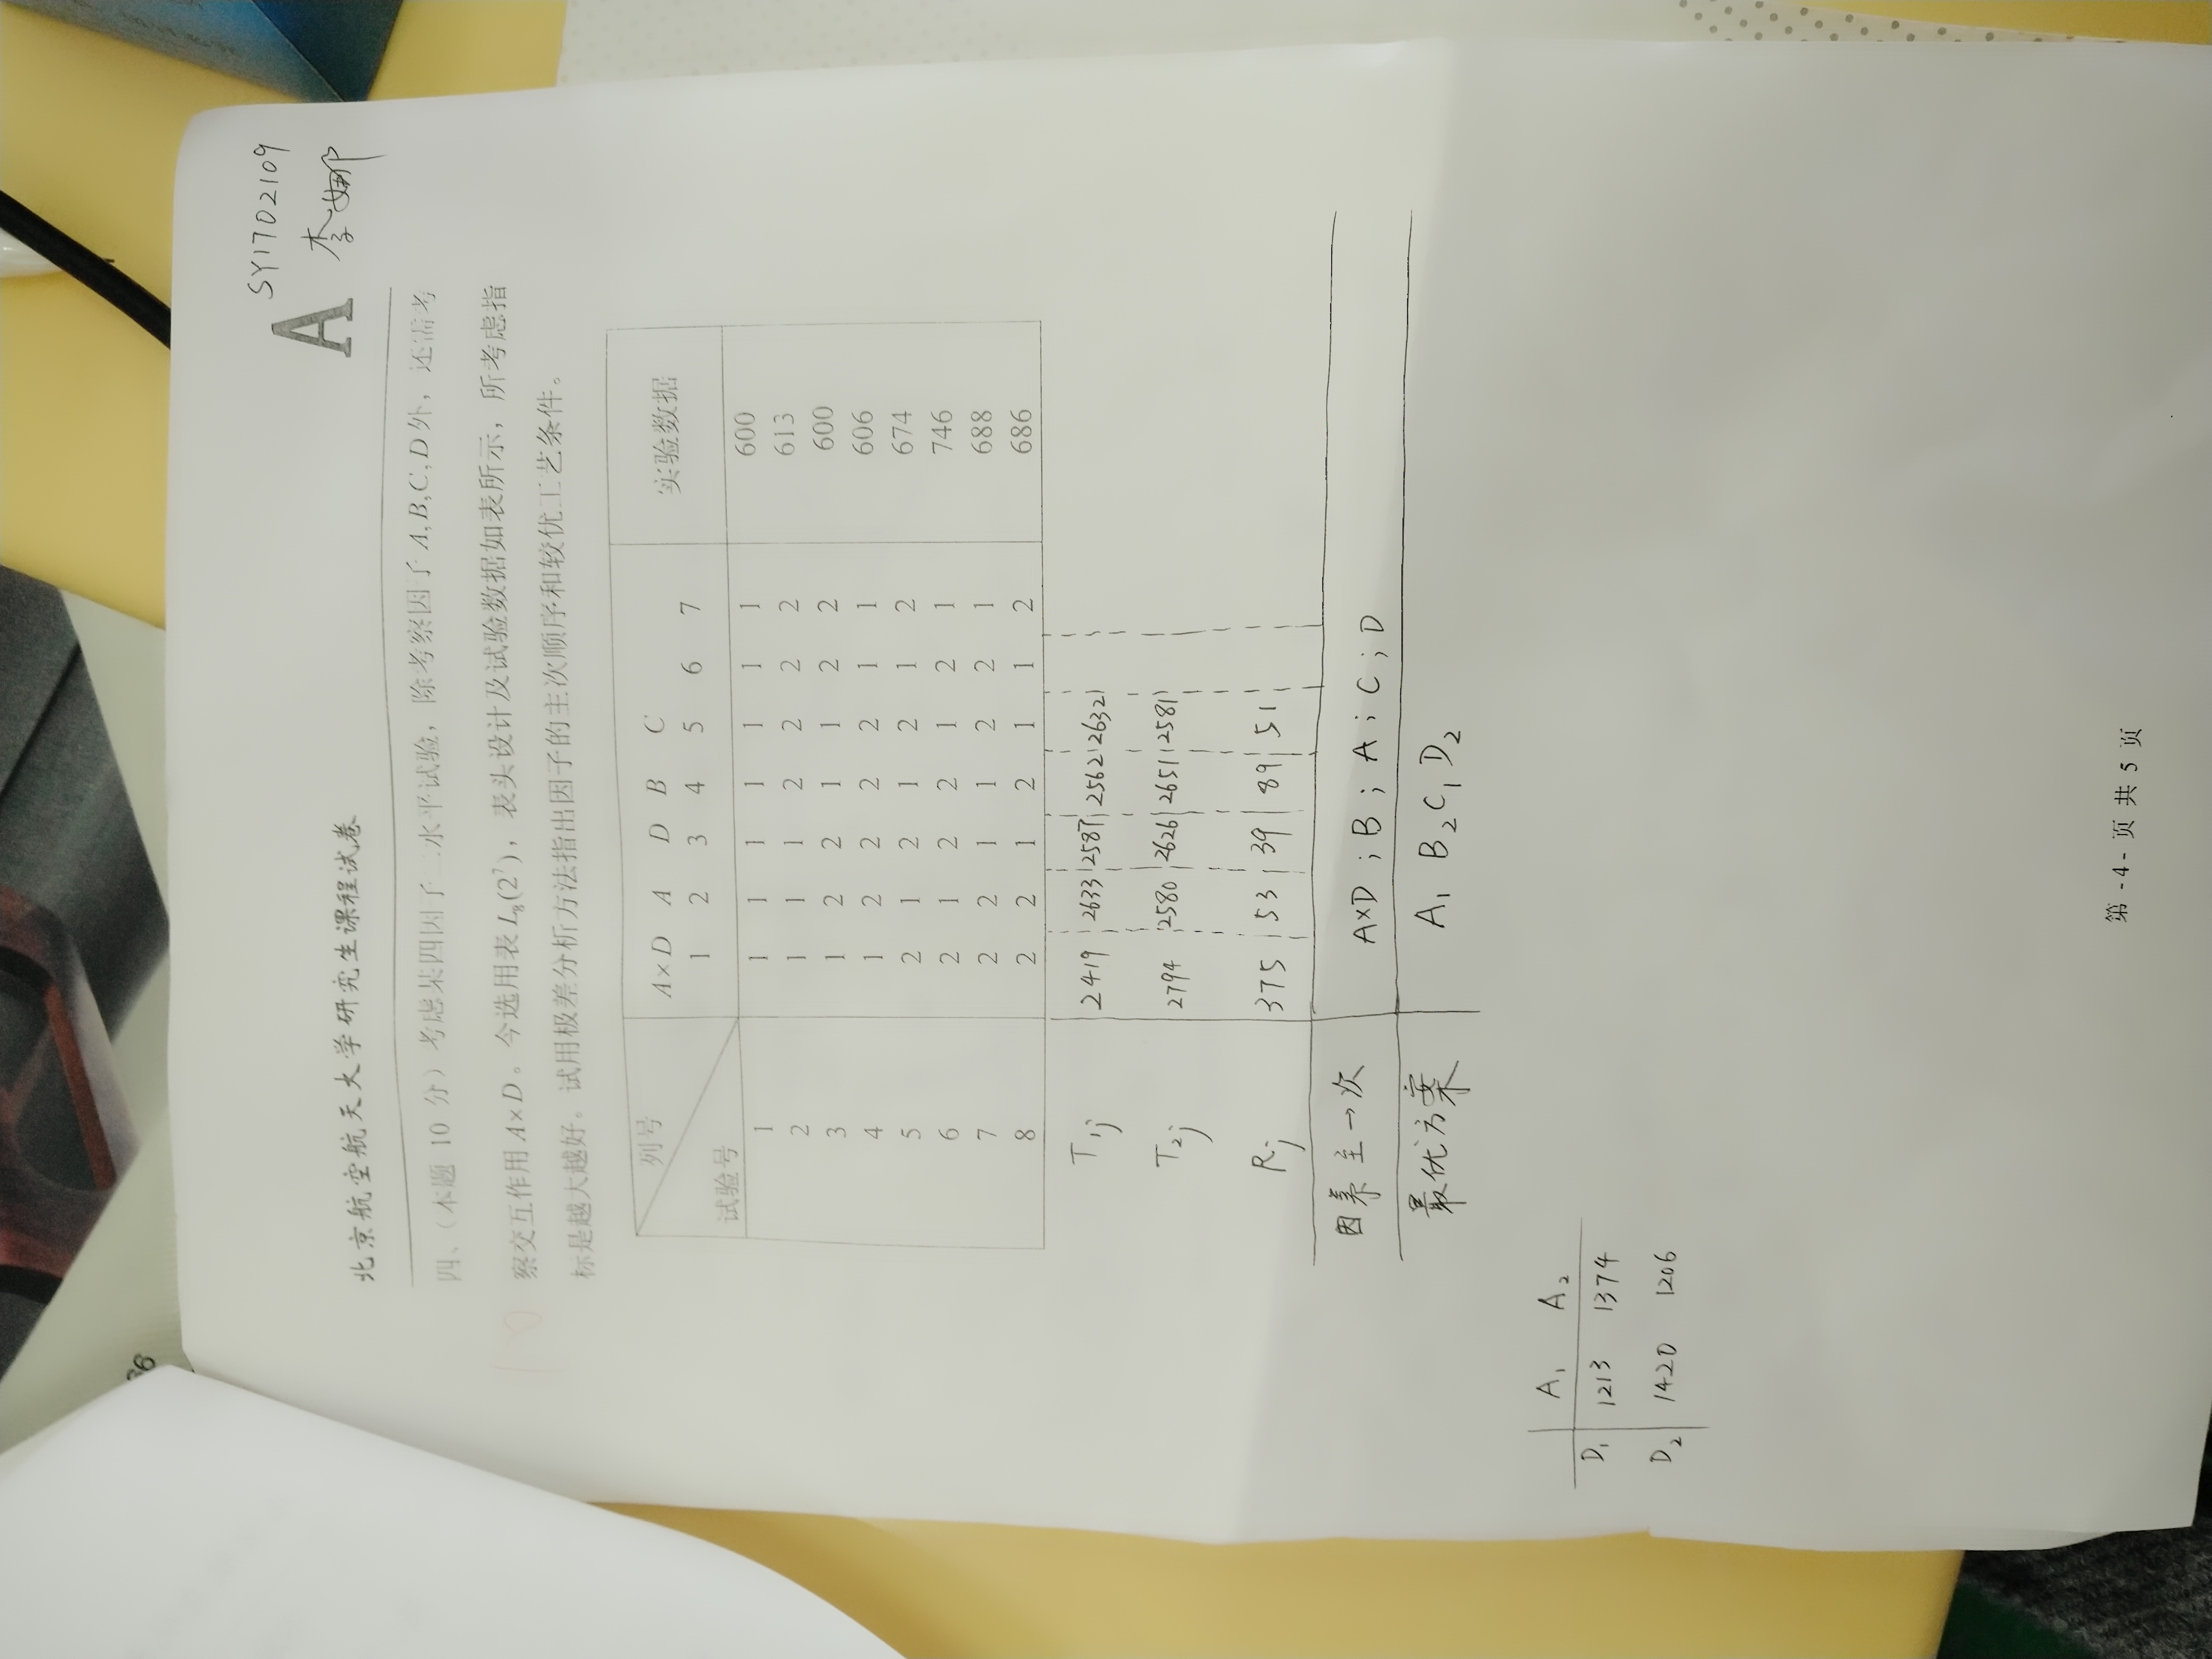 66
SY1702109
A
李娜
北京航空航天大学研究生课程试卷
四、（本题 10 分）考虑某四因子二水平试验，除考察因子 A,B,C,D 外，还需考
察交互作用 A×D 。今选用表 L₈(2⁷)，表头设计及试验数据如表所示，所考虑指
标是越大越好。试用极差分析方法指出因子的主次顺序和较优工艺条件。
列号 A×D A D B C 实验数据
试验号 1 2 3 4 5 6 7
1 1 1 1 1 1 1 1 600
2 1 1 1 2 2 2 2 613
3 1 2 2 1 1 2 2 600
4 1 2 2 2 2 1 1 606
5 2 1 2 1 2 1 2 674
6 2 1 2 2 1 2 1 746
7 2 2 1 1 2 2 1 688
8 2 2 1 2 1 1 2 686
T₁ⱼ 2419 2633 2587 2562 2632
T₂ⱼ 2794 2580 2626 2651 2581
Rⱼ 375 53 39 89 51
因素主→次 A×D ; B ; A ; C ; D
最优方案 A₁ B₂ C₁ D₂
A₁ A₂
D₁ 1213 1374
D₂ 1420 1206
第 -4- 页 共 5 页